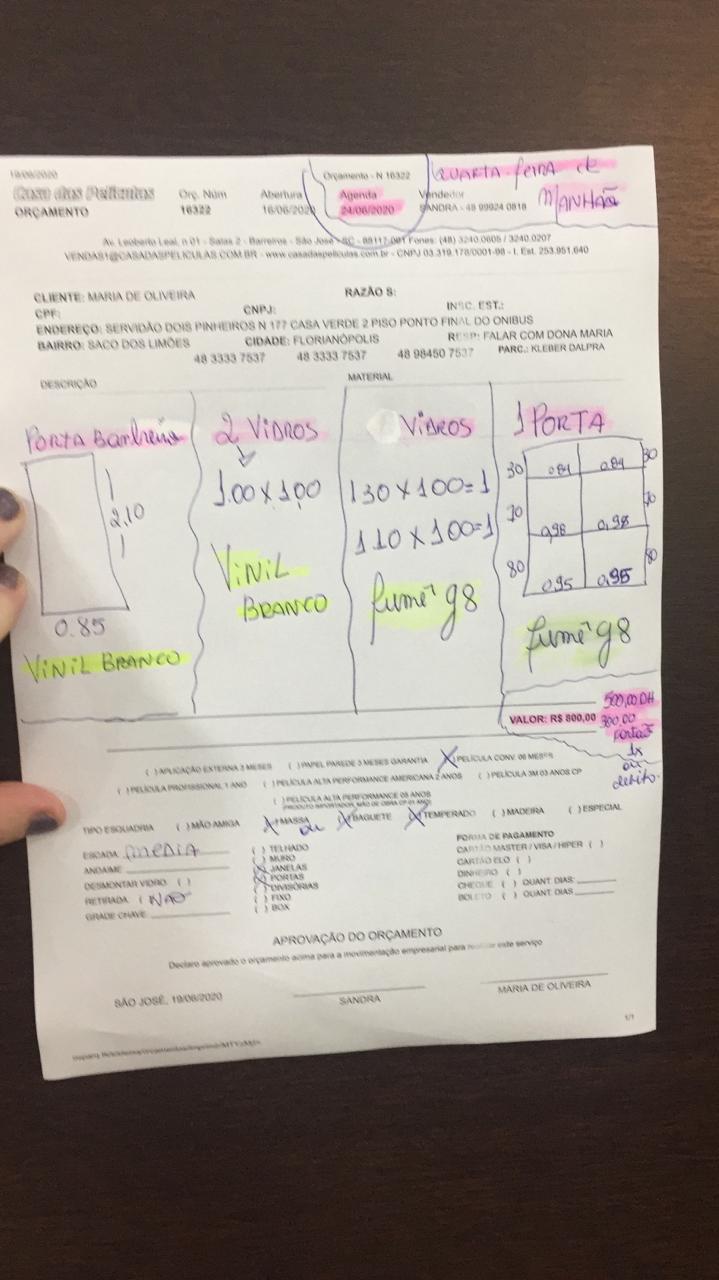 19/06/2020
Orçamento - N 16322
QUARTA-FEIRA de
MANHÃO
Casa das Películas
Orç. Núm
Abertura
Agenda
Vendedor
ORÇAMENTO
16322
16/06/2020
24/06/2020
SANDRA - 48 99924 0818
Av. Leoberto Leal, n 01 - Salas 2 - Barreiros - São José - SC - 88117-001 Fones: (48) 3240.0605 / 3240.0207
VENDAS1@CASADASPELICULAS.COM.BR - www.casadaspeliculas.com.br - CNPJ 03.319.178/0001-98 - I. Est. 253.951.640
CLIENTE: MARIA DE OLIVEIRA
RAZÃO S:
CPF:
CNPJ:
INSC. EST.:
ENDEREÇO: SERVIDÃO DOIS PINHEIROS N 177 CASA VERDE 2 PISO PONTO FINAL DO ONIBUS
BAIRRO: SACO DOS LIMÕES
CIDADE: FLORIANÓPOLIS
RESP: FALAR COM DONA MARIA
48 3333 7537
48 3333 7537
48 98450 7537
PARC.: KLEBER DALPRA
DESCRIÇÃO
MATERIAL
PORTA Banheiro
2.10
0.85
VINIL BRANCO
2 VIDROS
1.00 X 1,00
VINIL
BRANCO
VIDROS
130 X 100=1
110 X 100=1
fumê g8
1 PORTA
30 0,84 0,84 30
70 0,98 0,98 70
80 0,95 0,95 80
fumê g8
VALOR: R$ 800,00
500,00 DH
300,00
1x
débito
( ) APLICAÇÃO EXTERNA 3 MESES ( ) PAPEL PAREDE 3 MESES GARANTIA (X) PELÍCULA CONV. 06 MESES
( ) PELÍCULA PROFISSIONAL 1 ANO ( ) PELÍCULA ALTA PERFORMANCE AMERICANA 2 ANOS ( ) PELÍCULA 3M 03 ANOS CP
( ) PELÍCULA ALTA PERFORMANCE 05 ANOS
TIPO ESQUADRIA ( ) MÃO AMIGA (X) MASSA ou (X) BAGUETE (X) TEMPERADO ( ) MADEIRA ( ) ESPECIAL
ESCADA media
ANDAIME
DESMONTAR VIDRO ( )
RETIRADA ( NÃO
GRADE CHAVE
( ) TELHADO
( ) MURO
(X) JANELAS
(X) PORTAS
( ) DIVISÓRIAS
( ) FIXO
( ) BOX
FORMA DE PAGAMENTO
CARTÃO MASTER / VISA / HIPER ( )
CARTÃO ELO ( )
DINHEIRO ( )
CHEQUE ( ) QUANT. DIAS:
BOLETO ( ) QUANT. DIAS
APROVAÇÃO DO ORÇAMENTO
Declaro aprovado o orçamento acima para a movimentação empresarial para realizar este serviço
SÃO JOSÉ, 19/06/2020
SANDRA
MARIA DE OLIVEIRA
1/1